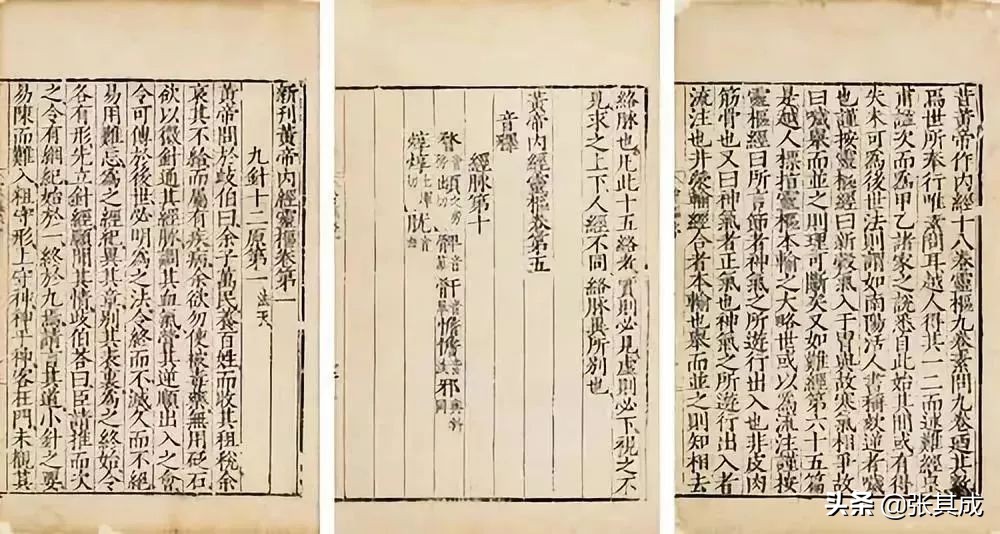 昔黃帝作內經十八卷靈樞九卷素問九卷廼其數
焉世所奉行唯素問耳越人得其一二而述難經皇
甫謐次而為甲乙諸家之說悉自此始其間或有得
失未可為後世法則謂如南陽活人書稱欬逆者噦
也謹按靈樞經曰新穀氣入于胃與故寒氣相爭故
曰噦舉而並之則理可斷矣又如難經第六十五篇
是越人標指靈樞本輸之大略世或以為流注謹按
靈樞經曰所言節者神氣之所遊行出入也非皮肉
筋骨也又曰神氣者正氣也神氣之所遊行出入者
流注也井滎輸經合者本輸也舉而並之則知相去
絡脉也凡此十五絡者實則必見虛則必下視之不
見求之上下人經不同絡脉異所別也
黃帝內經靈樞卷第五
音釋
經脉第十
頄 骭 憺憺 邪
胱
新刊黃帝內經靈樞卷第一
九針十二原第一 法天
黃帝問於歧伯曰余子萬民養百姓而收其租稅余
哀其不給而屬有疾病余欲勿使被毒藥無用砭石
欲以微針通其經脉調其血氣營其逆順出入之會
令可傳於後世必明為之法令終而不滅久而不絕
易用難忘為之經紀異其章別其表裏為之終始令
各有形先立針經願聞其情歧伯荅曰臣請推而次
之令有綱紀始於一終於九焉請言其道小針之要
易陳而難入粗守形上守神神乎神客在門未覩其
头条 @张其成